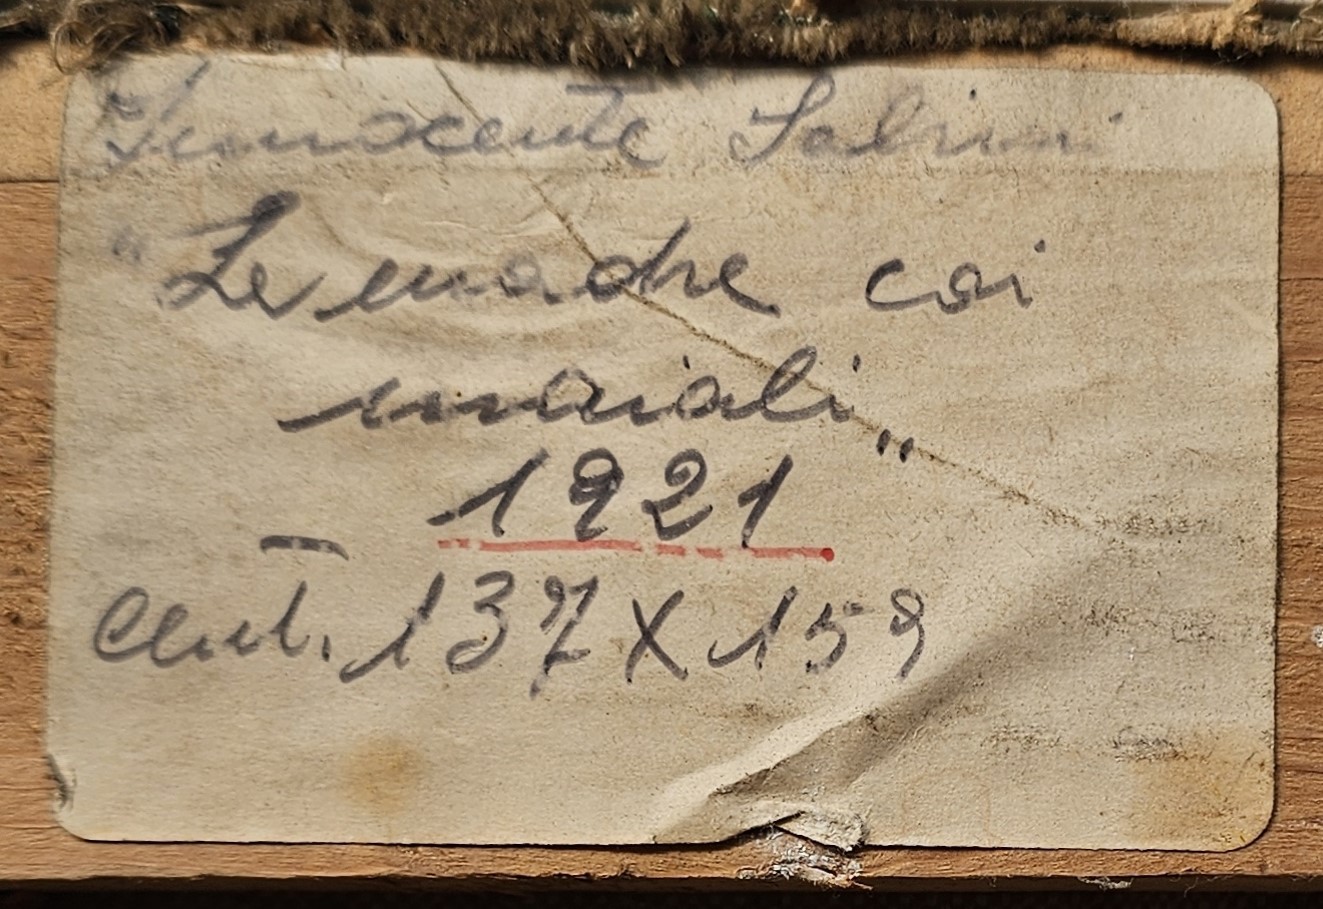 Innocente Salvini
"La madre coi
maiali"
1921
cent. 137 X 159